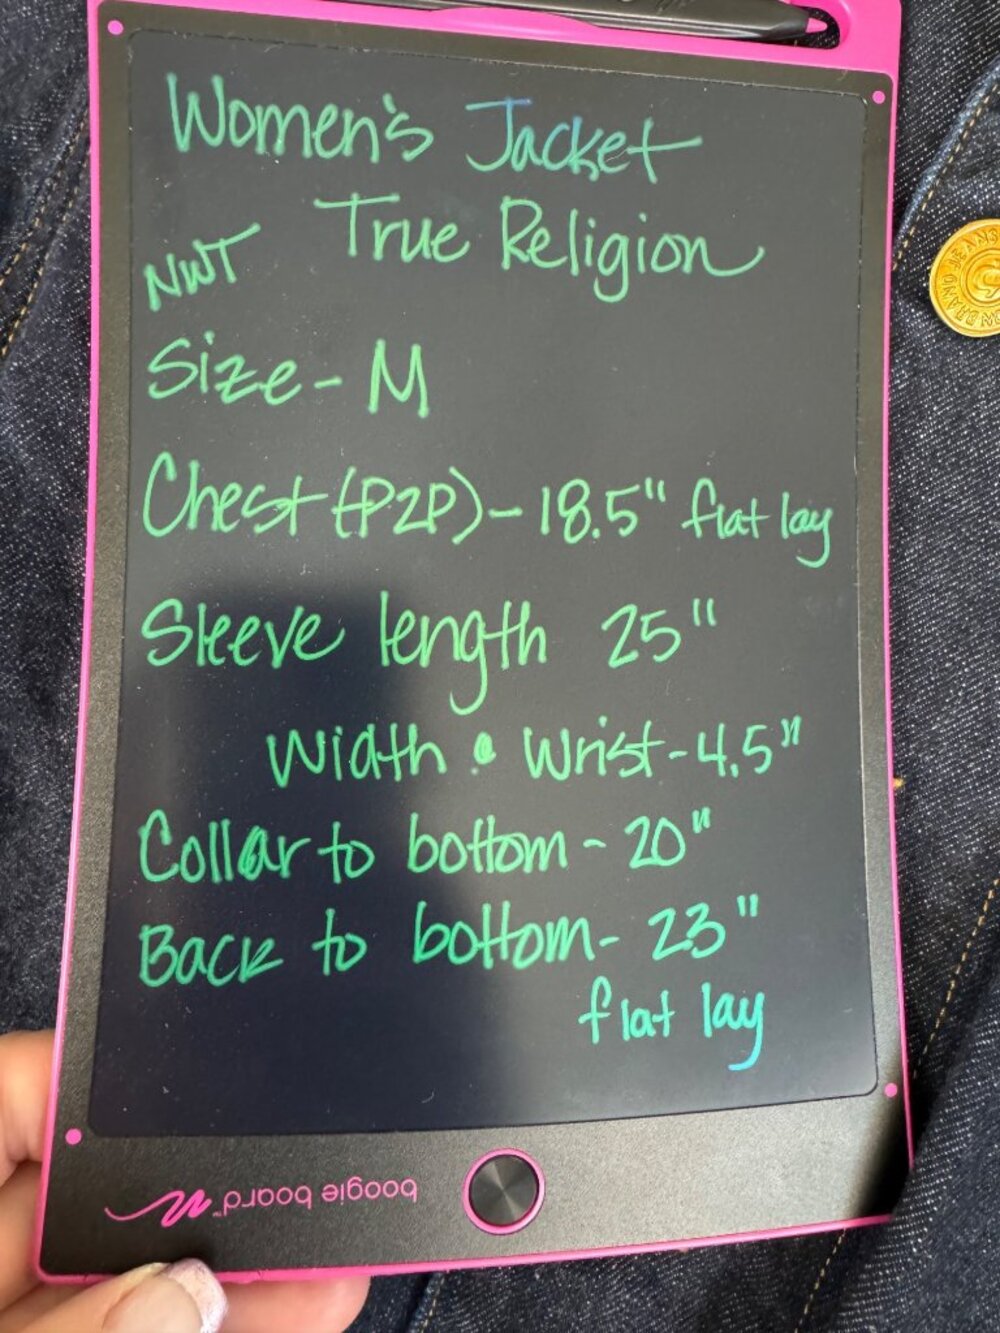 Women's Jacket
True Religion
NWT
Size - M
Chest (P2P) - 18.5" flat lay
Sleeve length 25"
Width • Wrist - 4.5"
Collar to bottom - 20"
Back to bottom - 23"
flat lay
boogie board™
JEANS
BRAND